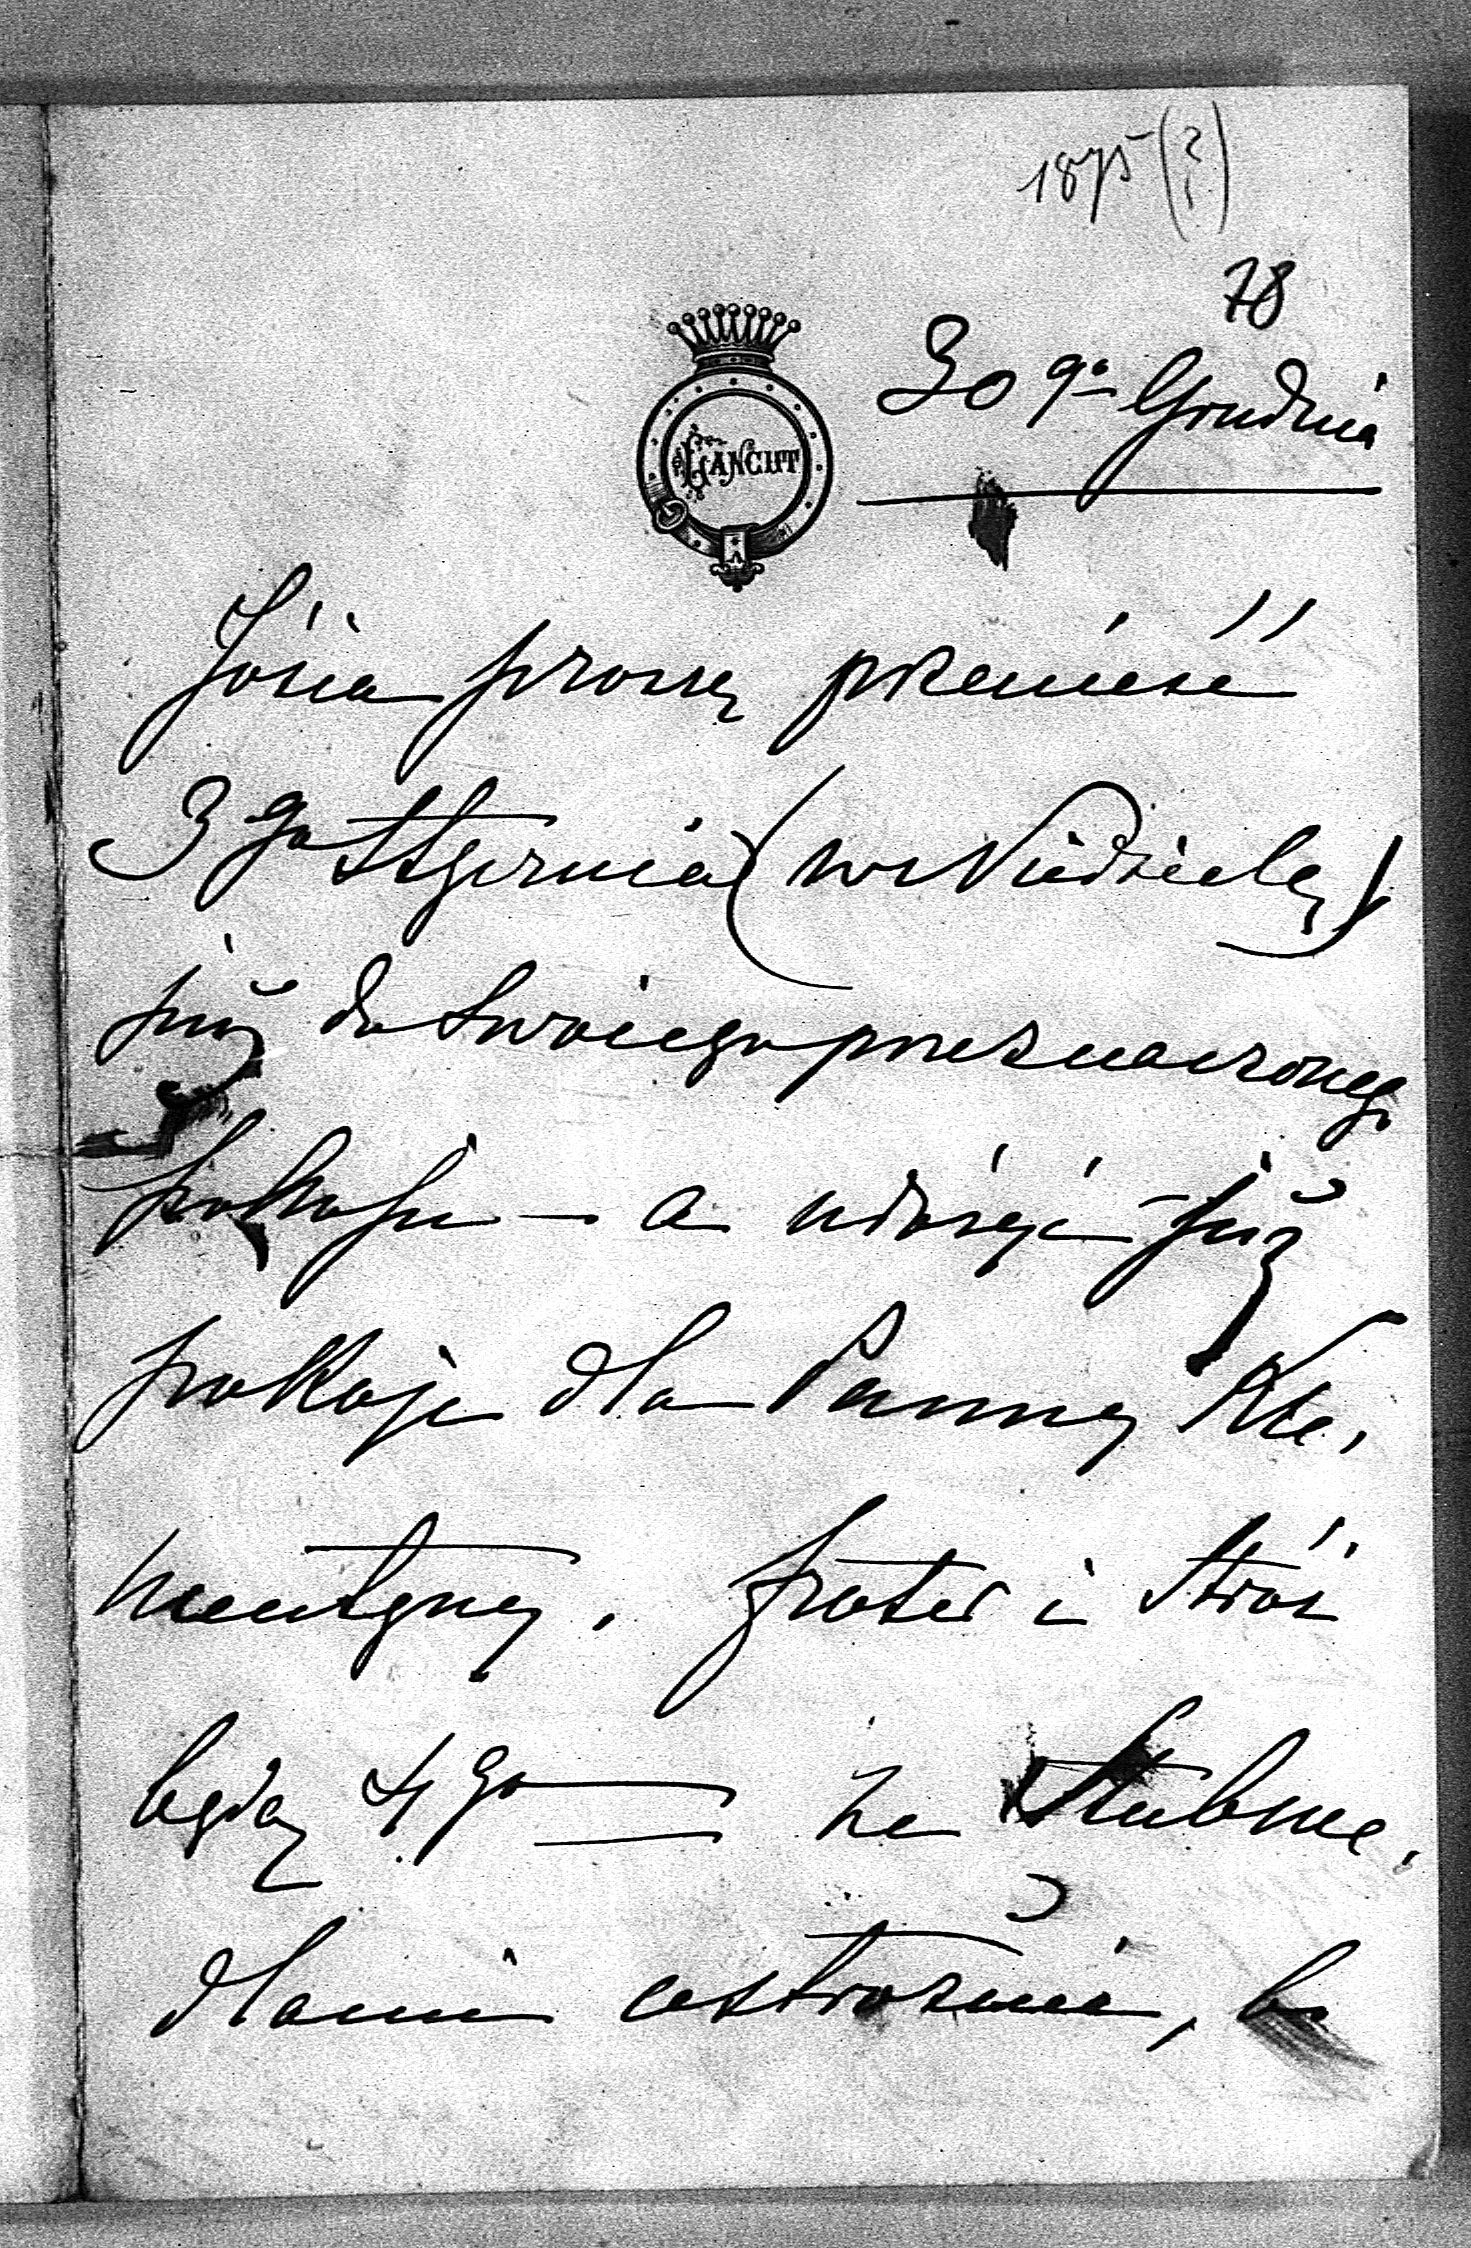 1875 (?)
78
ŁAŃCUT
30 go Grudnia
Józia proszę przenieść
3 go Stycznia (w Niedzielę)
już do swoiego przeznaczonego
pokoju — a urządzić już
pokoje dla Panny Kle,
mentyny. frater i Stróż
będą 4 go — ze
dlami ostrożnie, bo